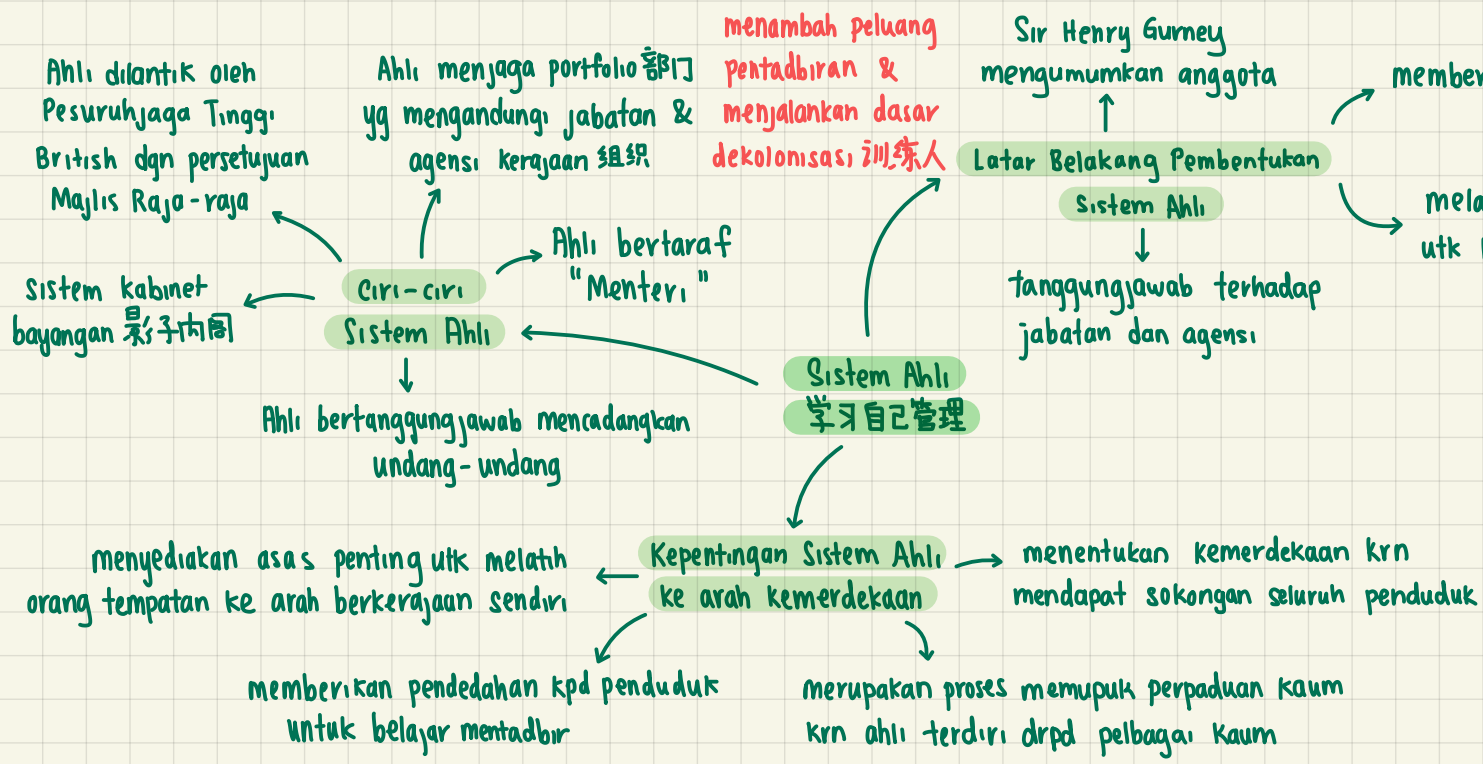 Ahli dilantik oleh
Pesuruhjaga Tinggi
British dgn persetujuan
Majlis Raja-raja
Ahli menjaga portfolio 部门
yg mengandungi jabatan &
agensi kerajaan 组织
menambah peluang
pentadbiran &
menjalankan dasar
dekolonisasi 训练人
Sir Henry Gurney
mengumumkan anggota
Latar Belakang Pembentukan
Sistem Ahli
tanggungjawab terhadap
jabatan dan agensi
Sistem kabinet
bayangan 影子内阁
Ciri-ciri
Sistem Ahli
Ahli bertaraf
"Menteri"
Ahli bertanggungjawab mencadangkan
undang-undang
Sistem Ahli
学习自己管理
Kepentingan Sistem Ahli
ke arah kemerdekaan
menyediakan asas penting utk melatih
orang tempatan ke arah berkerajaan sendiri
menentukan kemerdekaan krn
mendapat sokongan seluruh penduduk
memberikan pendedahan kpd penduduk
untuk belajar mentadbir
merupakan proses memupuk perpaduan kaum
krn ahli terdiri drpd pelbagai kaum
utk